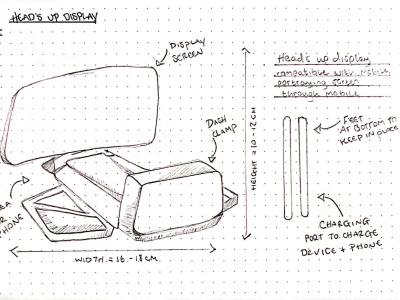 HEAD'S UP DISPLAY
DISPLAY
SCREEN
Head's up display
compatible with Mobile
portraying screen
through mobile
DASH
CLAMP
HEIGHT = 10-12CM
FEET
AT BOTTOM TO
KEEP IN PLACE
PHONE
CHARGING
PORT TO CHARGE
DEVICE + PHONE
WIDTH = 16-18CM